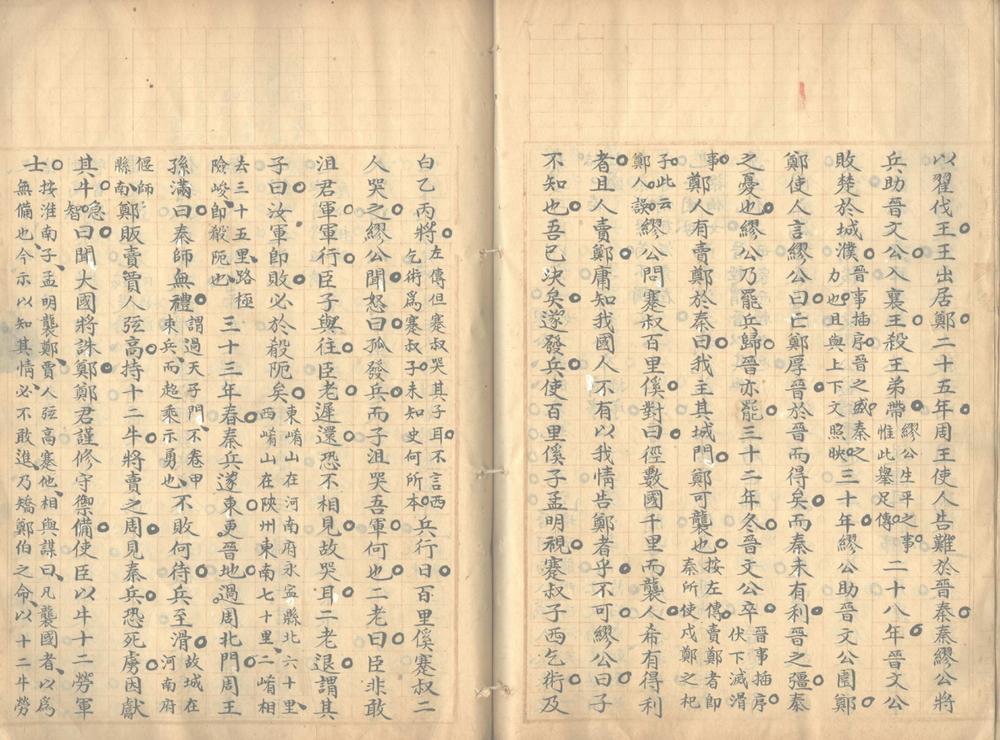 以翟伐王王出居鄭二十五年周王使人告難於晉秦秦繆公將
兵助晉文公入襄王殺王弟帶繆公生平之事惟此舉足傳二十八年晉文公
敗楚於城濮晉事插序晉之盛秦之力也且與上下文照映三十年繆公助晉文公圍鄭
鄭使人言繆公曰亡鄭厚晉於晉而得矣而秦未有利晉之彊秦
之憂也繆公乃罷兵歸晉亦罷三十二年冬晉文公卒晉事插序伏下滅滑
事鄭人有賣鄭於秦曰我主其城門鄭可襲也按左傳賣鄭者即秦所使戍鄭之杞
子此云鄭人誤繆公問蹇叔百里傒對曰徑數國千里而襲人希有得利
者且人賣鄭庸知我國人不有以我情告鄭者乎不可繆公曰子
不知也吾已決矣遂發兵使百里傒子孟明視蹇叔子西乞術及
白乙丙將左傳但蹇叔哭其子耳不言西乞術為蹇叔子未知史何所本兵行日百里傒蹇叔二
人哭之繆公聞怒曰孤發兵而子沮哭吾軍何也二老曰臣非敢
沮君軍軍行臣子與往臣老遲還恐不相見故哭耳二老退謂其
子曰汝軍即敗必於殽阨矣東崤山在河南府永孟縣北六十里西崤山在陝州東南七十里二崤相
去三十五里路極險峻即殽阨也三十三年春秦兵遂東更晉地過周北門周王
孫滿曰秦師無禮謂過天子門不卷甲束兵而超乘示勇也不敗何待兵至滑故城在河南府
偃師縣南鄭販賣賈人弦高持十二牛將賣之周見秦兵恐死虜因獻
其牛急智曰聞大國將誅鄭鄭君謹修守禦備使臣以牛十二勞軍
士按淮南子孟明襲鄭賈人弦高蹇他相與謀曰凡襲國者以為無備也今示以知其情必不敢進乃矯鄭伯之命以十二牛勞